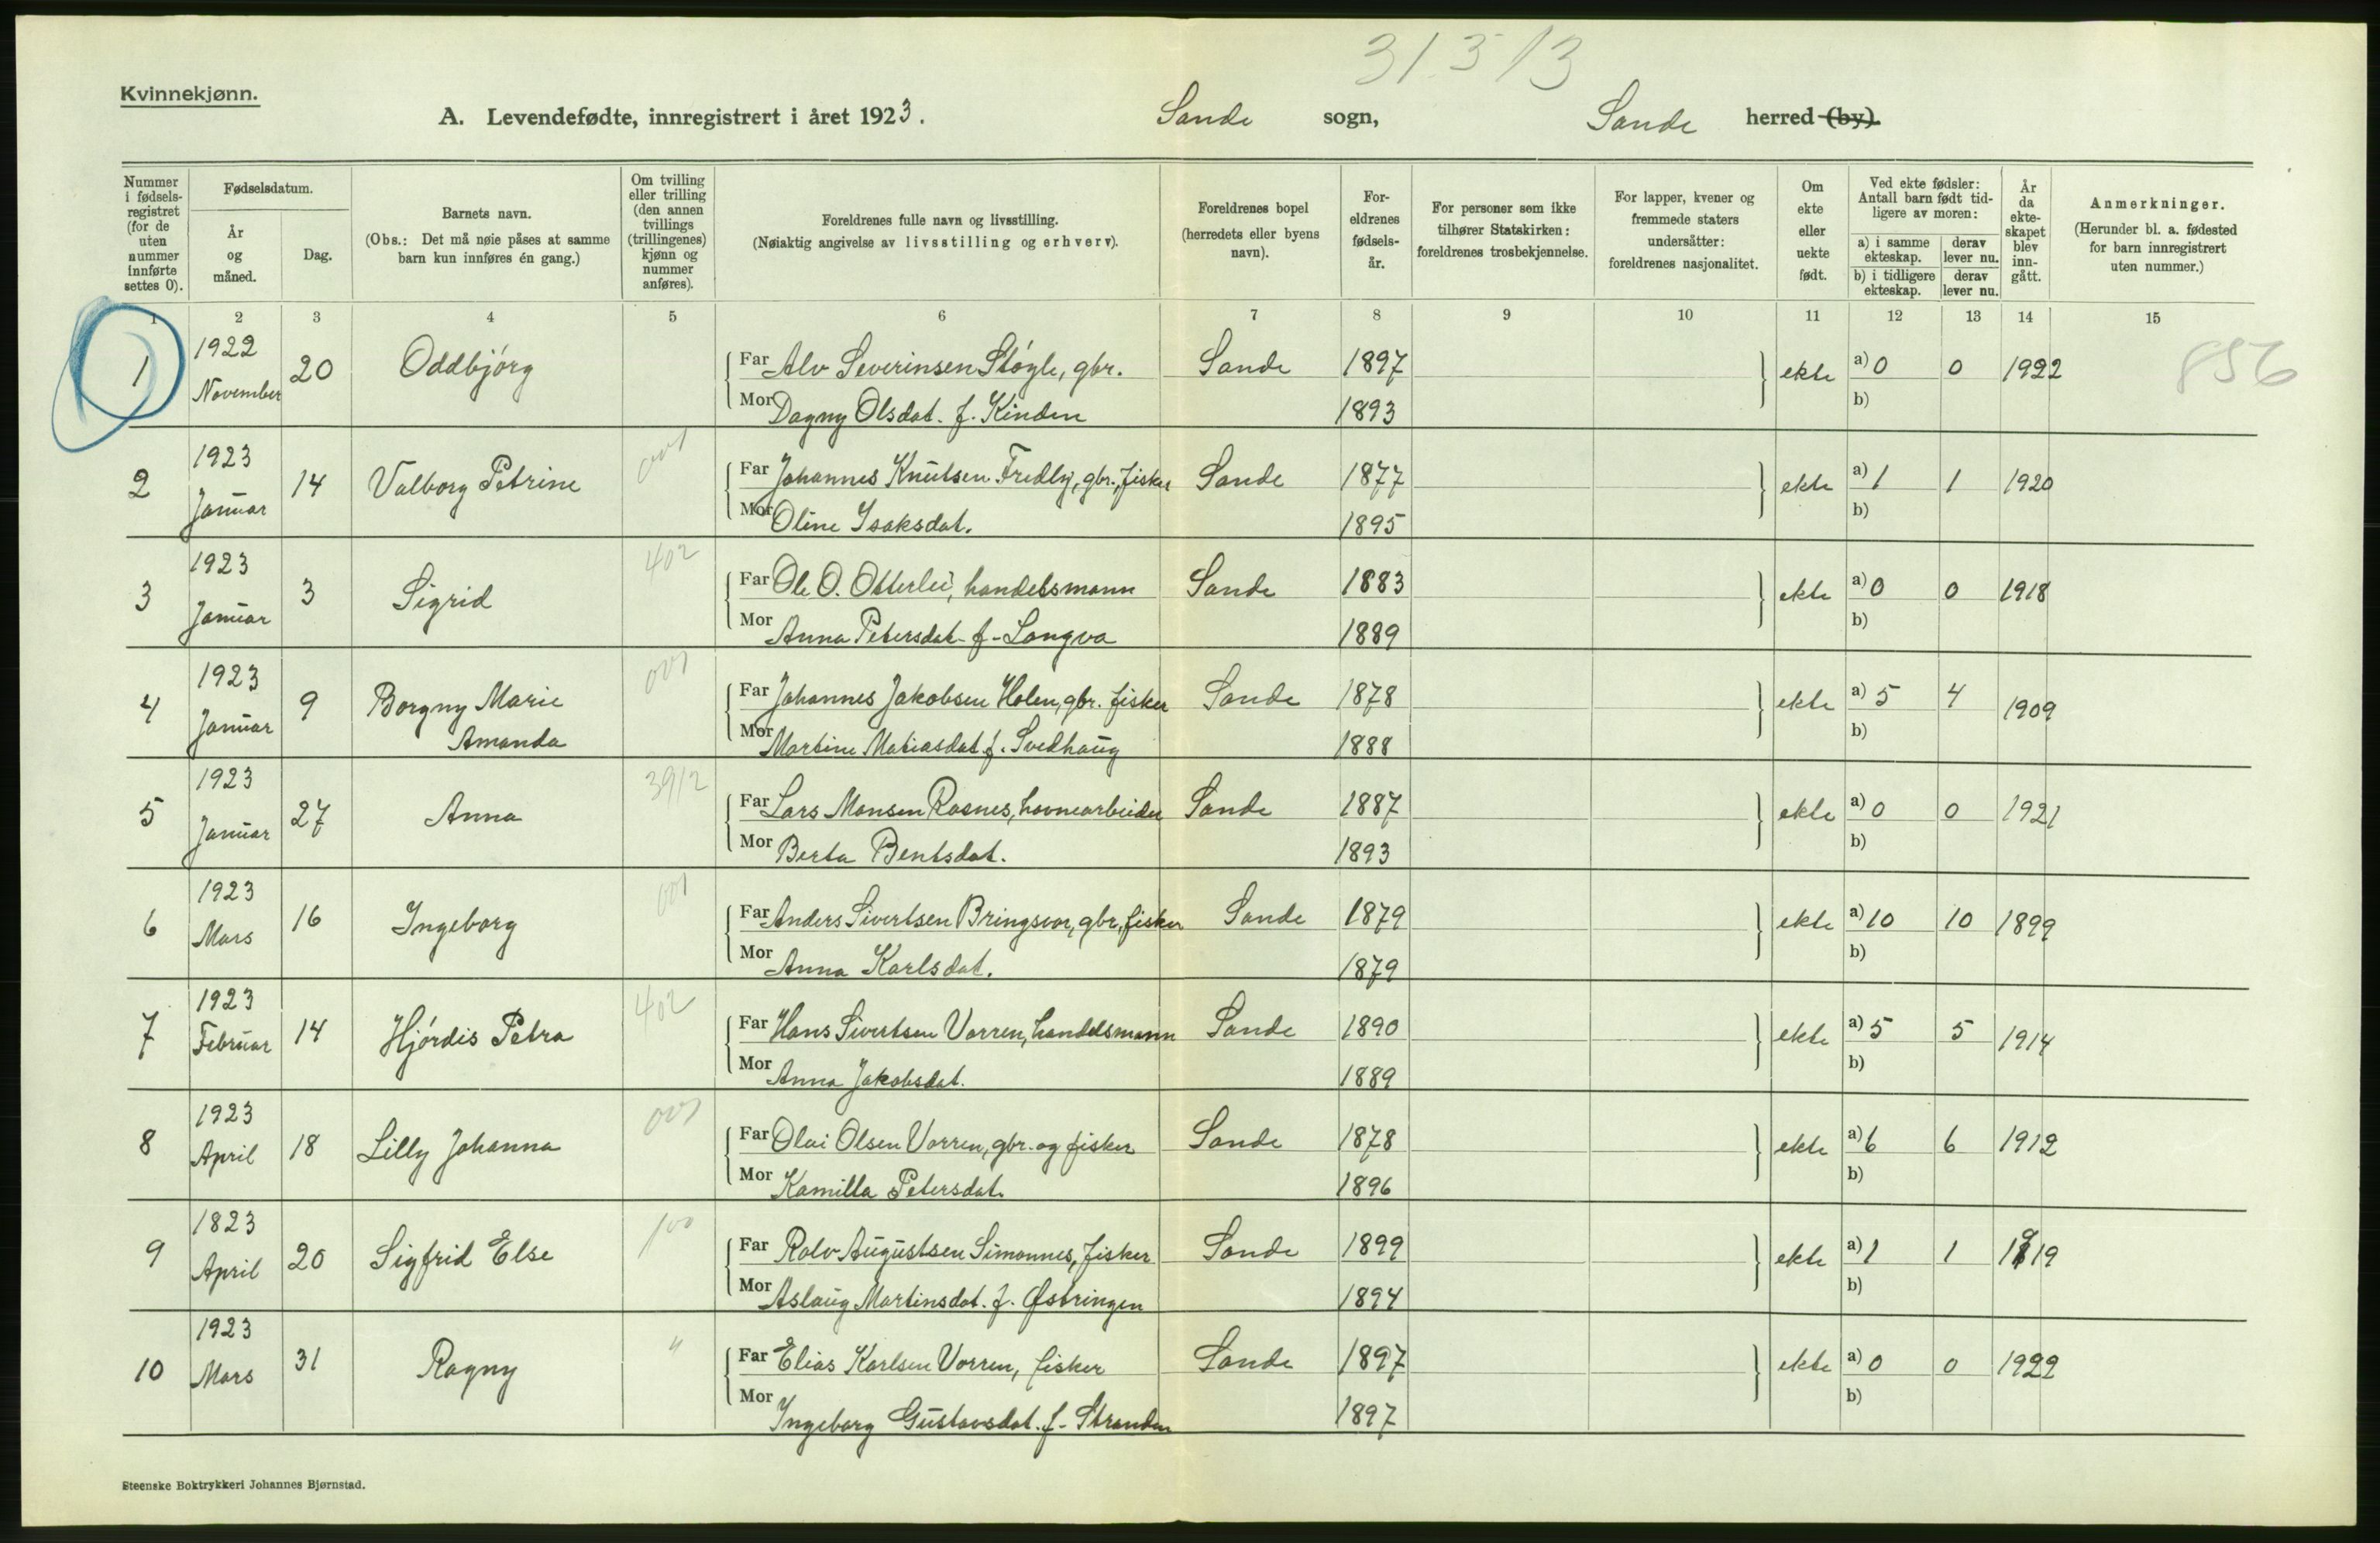 31513
Kvinnekjønn.
A. Levendefødte, innregistrert i året 1923. Sande sogn, Sande herred (by).
Nummer i fødselsregistret (for de uten nummer innførte settes 0).
Fødselsdatum.
År og måned.
Dag.
Barnets navn.
(Obs.: Det må nøie påses at samme barn kun innføres én gang.)
Om tvilling eller trilling (den annen tvillings (trillingenes) kjønn og nummer anføres).
Foreldrenes fulle navn og livsstilling.
(Nøiaktig angivelse av livsstilling og erhverv).
Foreldrenes bopel (herredets eller byens navn).
Foreldrenes fødselsår.
For personer som ikke tilhører Statskirken: foreldrenes trosbekjennelse.
For lapper, kvener og fremmede staters undersåtter: foreldrenes nasjonalitet.
Om ekte eller uekte født.
Ved ekte fødsler: Antall barn født tidligere av moren:
a) i samme ekteskap. derav lever nu.
b) i tidligere ekteskap. derav lever nu.
År da ekteskapet blev inngått.
Anmerkninger.
(Herunder bl. a. fødested for barn innregistrert uten nummer.)
1 2 3 4 5 6 7 8 9 10 11 12 13 14 15
1 1922 November 20 Oddbjórg Far Alv Severinsen Stóyle, gbr. Sande 1897 ekte a) 0 0 1922 856
Mor Dagny Olsdat. f. Kinden 1893 b)
2 1923 Januar 14 Valborg Petrine 001 Far Johannes Knutsen Fredly, gbr., fisker Sande 1877 ekte a) 1 1 1920
Mor Oline Isaksdat. 1895 b)
3 1923 Januar 3 Sigrid 402 Far Ole O. Otterlei, handelsmann Sande 1883 ekte a) 0 0 1918
Mor Anna Petersdat. f. Longva 1889 b)
4 1923 Januar 9 Borgny Marie Amanda 001 Far Johannes Jakobsen Holen, gbr. fisker Sande 1878 ekte a) 5 4 1909
Mor Martine Matiasdat. f. Svedhaug 1888 b)
5 1923 Januar 27 Anna 3912 Far Lars Monsen Rasnes, havnearbeider Sande 1887 ekte a) 0 0 1921
Mor Berta Bentsdat. 1893 b)
6 1923 Mars 16 Ingeborg 001 Far Anders Sivertsen Bringsvor, gbr, fisker Sande 1879 ekte a) 10 10 1899
Mor Anna Karlsdat. 1879 b)
7 1923 Februar 14 Hjórdis Petra 402 Far Hans Sivertsen Vorren, handelsmann Sande 1890 ekte a) 5 5 1914
Mor Anna Jakobsdat. 1889 b)
8 1923 April 18 Lilly Johanna 001 Far Olai Olsen Vorren, gbr. og fisker Sande 1878 ekte a) 6 6 1912
Mor Kamilla Petersdat. 1896 b)
9 1823 April 20 Sigfrid Else 100 Far Rolv Augustsen Simonnes, fisker Sande 1899 ekte a) 1 1 1919
Mor Aslaug Martinsdat. f. Østringen 1894 b)
10 1923 Mars 31 Ragny " Far Elias Karlsen Vorren, fisker Sande 1897 ekte a) 0 0 1922
Mor Ingeborg Gustavsdat. f. Stranden 1897 b)
Steenske Boktrykkeri Johannes Bjørnstad.